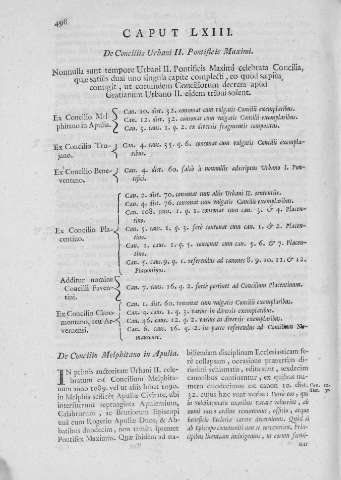 496
CAPUT LXIII.
De Conciliis Urbani II. Pontificis Maximi.
Nonnulla sunt tempore Urbani II. Pontificis Maximi celebrata Concilia,
quæ satius duxi uno singula capite complecti, eo quod sæpius
contigit, ut eorumdem Conciliorum decreta apud
Gratianum Urbano II. eidem tribui solent.
Ex Concilio Mel-
phitano in Apulia.
Can. 10. dist. 32. consonat cum vulgatis Concilii exemplaribus.
Can. 12. dist. 32. consonat cum vulgatis Concilii exemplaribus.
Can. 5. caus. 1. q. 2. ex diversis fragmentis compositus.
Ex Concilio Tro-
jano.
Can. 4. caus. 35. q. 6. consonat cum vulgatis Concilii exempla-
ribus.
Ex Concilio Bene-
ventano.
Can. 4. dist. 60. falso à nonnullis adscriptus Urbano I. Pon-
tifici.
Ex Concilio Pla-
centino.
Can. 2. dist. 70. consonat cum aliis Urbani II. sententiis.
Can. 4. dist. 76. consonat cum vulgatis Concilii exemplaribus.
Can. 108. caus. 1. q. 1. consonat cum can. 3. & 4. Placen-
tino.
Can. 5. caus. 1. q. 3. ferè consonat cum can. 1. & 2. Placen-
tino.
Can. 2. caus. 1. q. 5. consonat cum can. 5. 6. & 7. Placen-
tino.
Can. 5. caus. 9. q. 1. referendus ad canones 8. 9. 10. 11. & 12.
Placentinos.
Additur nomine
Concilii Faven-
tini.
Can. 7. caus. 16. q. 2. forte pertinet ad Concilium Placentinum.
Ex Concilio Claro-
montano, seu Ar-
vernensi.
Can. 1. dist. 60. consonat cum vulgatis Concilii exemplaribus.
Can. 4. caus. 1. q. 3. variæ in diversis exemplaribus.
Can. 46. caus. 12. q. 2. varius in diversis exemplaribus.
Can. 6. caus. 16. q. 2. in parte referendus ad Concilium Ne-
mausense.
De Concilio Melphitano in Apulia.
IN primis auctoritate Urbani II. cele-
bratum est Concilium Melphita-
num anno 1089. vel ut aliis libuit 1090.
in Melphia scilicet Apuliæ Civitate, ubi
interfuerunt septuaginta Apulienium,
Calabrorum, ac Brutiorum Episcopi
una cum Rogerio Apuliæ Duce, & Ab-
batibus duodecim, non renuit ipsemet
Pontifex Maximus. Quæ ibidem ad sta-
biliendam disciplinam Ecclesiasticam fe-
rè collapsam, occasione præsertim di-
turni schismatis, edita sunt, sexdecim
canonibus continentur, ex quibus nu-
mero duodecimus est canon 10. dist.
32. cujus hæc sunt verba:
Can. 12.
Dist. 32.